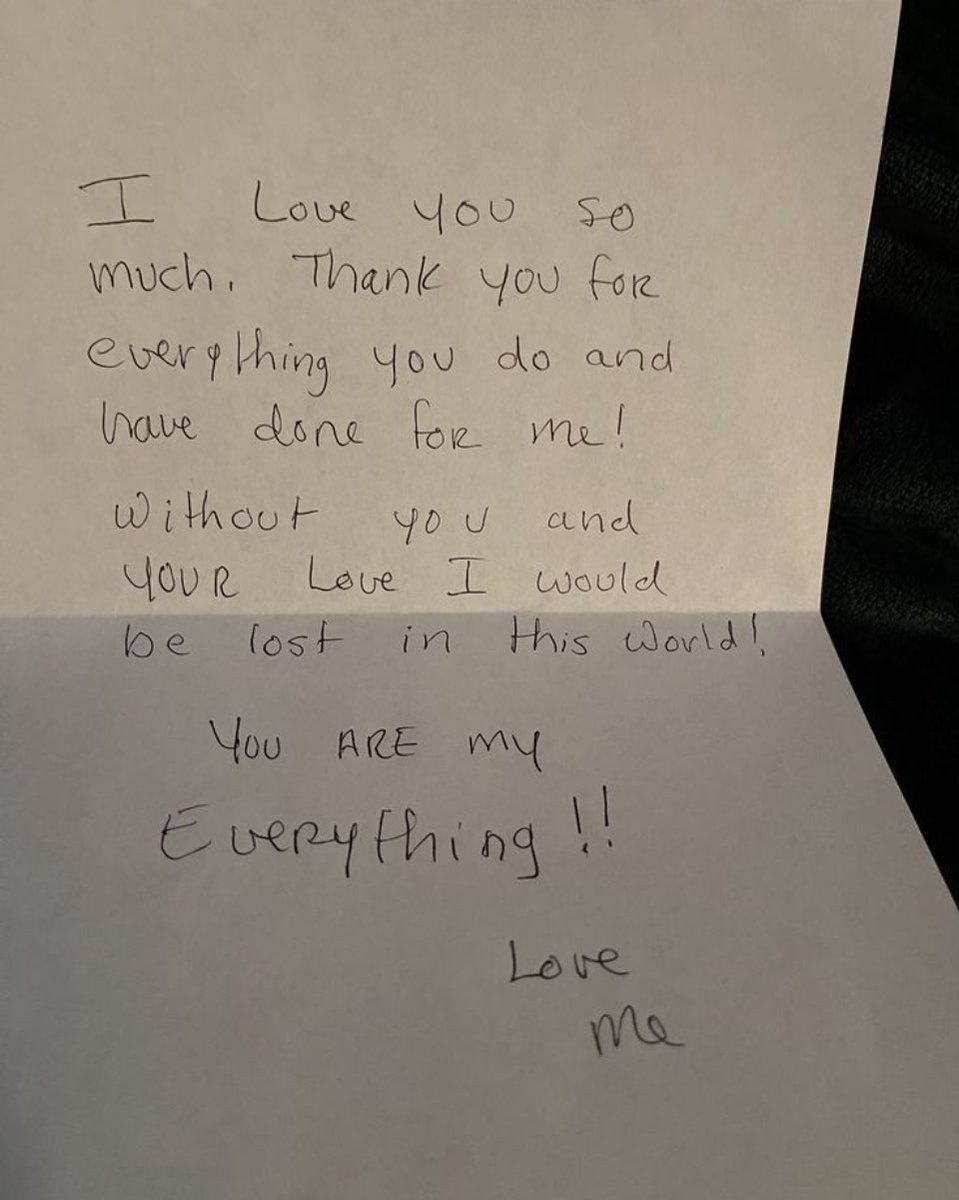 I Love you so
much. Thank you for
everything you do and
have done for me!
Without you and
YOUR Love I would
be lost in this world!
You ARE my
Everything!!
Love
me